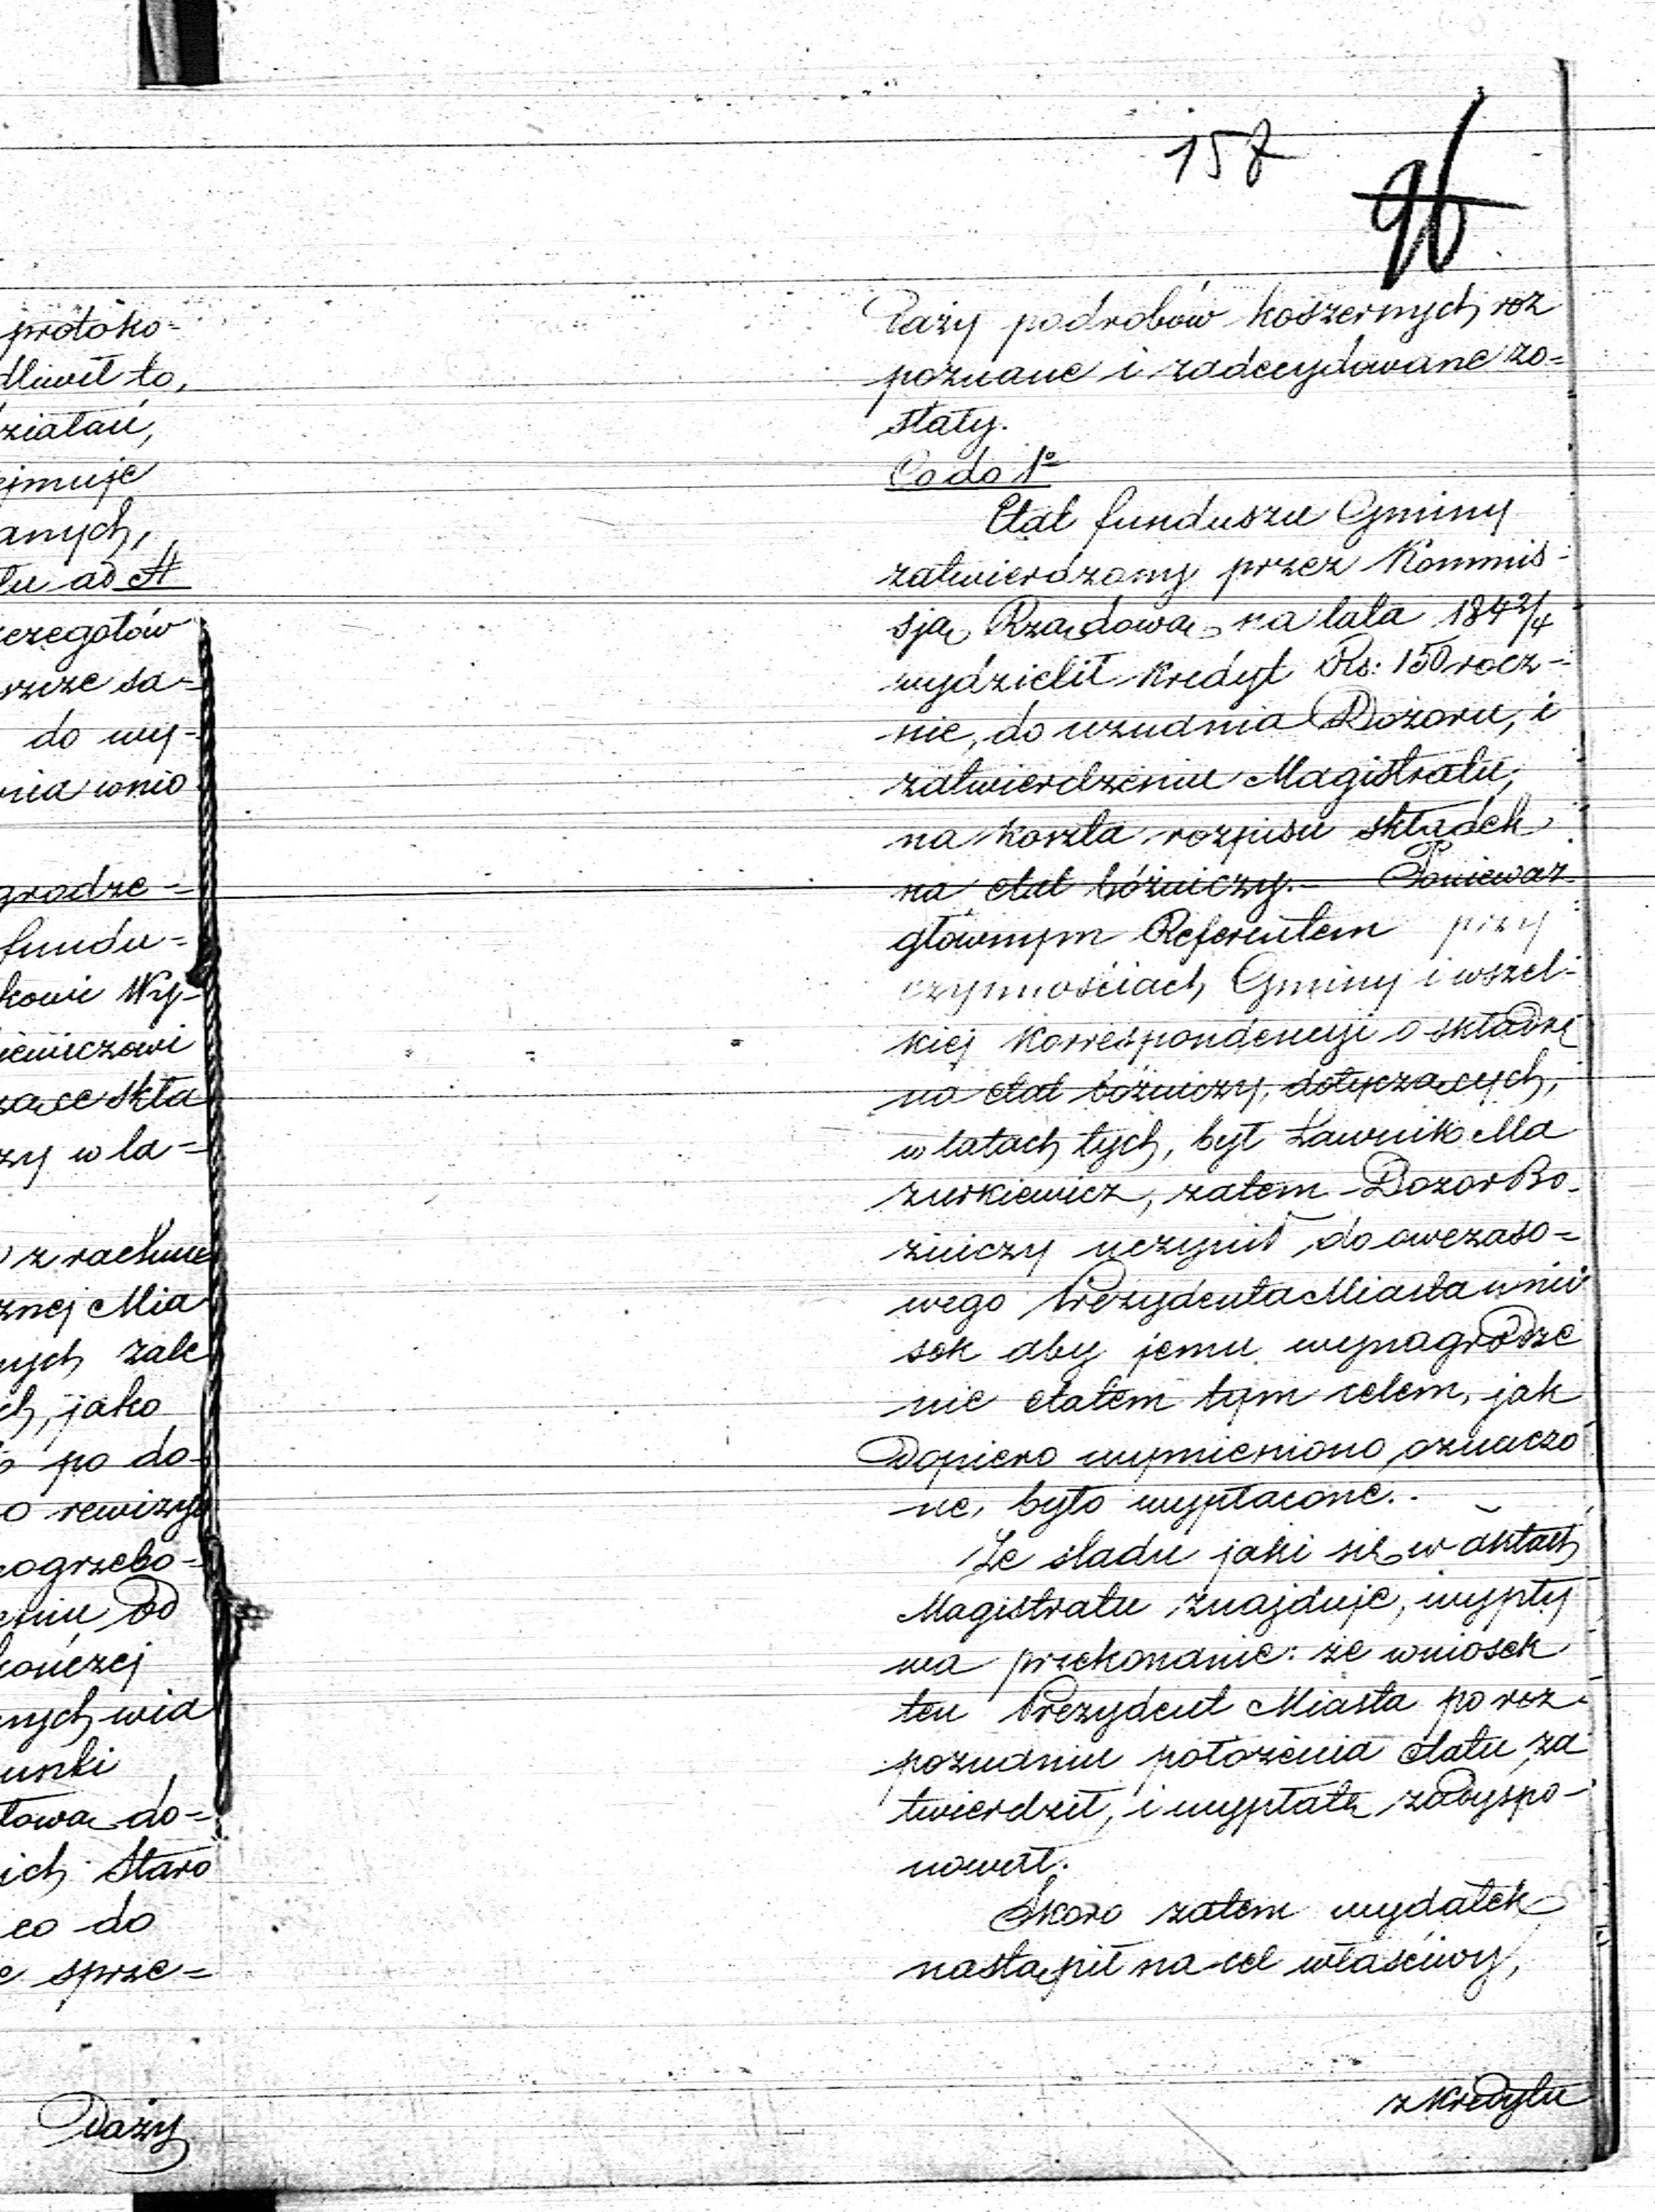 157
96
protoko=
dliwił to,
ziałań,
ejmuje
anych,
tu ad A
czegołów
rzize sa=
do wy=
nia wnio
grodze=
fundu=
kowi Wy=
ieniczowi
zące Skła
zy w la=
z rachun
znej Mia
ych zale
ch, jako
po do=
o rewizyi
pogrzebo=
eniu od
kończej
nych wia
unki
towa do=
ich Staro
co do
e sprze=
Daży
Daży podrobów koszernych roz
poznane i zadecydowane zo=
stały.
Co do 1º
Etat funduszu Gminy
zatwierdzony przez Kommis=
sją Rządową na lata 184 2/4
wydzielił kredyt Rs: 150 rocz=
nie, do uznania Dozoru, i
zatwierdzeniu Magistratu,
na koszta rozpisu składek
na etat bóżniczy.- Ponieważ
głównym Referentem przy
czynnościach Gminy i wszel=
kiej korrespondencyi o składkę
na etat bóżniczy, dotyczących,
w latach tych, był Ławnik Ma
zurkiewicz, zatem Dozor Bo=
żniczy uczynił do owczaso=
wego Prezydenta Miasta wnio
sek aby jemu wynagrodze
nie etatem tym celem, jak
dopiero wymieniono oznaczo
ne, było wypłacone..
Ze śladu jaki się w aktach
Magistratu znajduje, wypły
wa przekonanie: że wniosek
ten Prezydent Miasta po roz=
poznaniu położenia etatu za
twierdził, i wypłatę zadyspo=
nował.
Skoro zatem wydatek
nastąpił na cel właściwy,
z kredytu